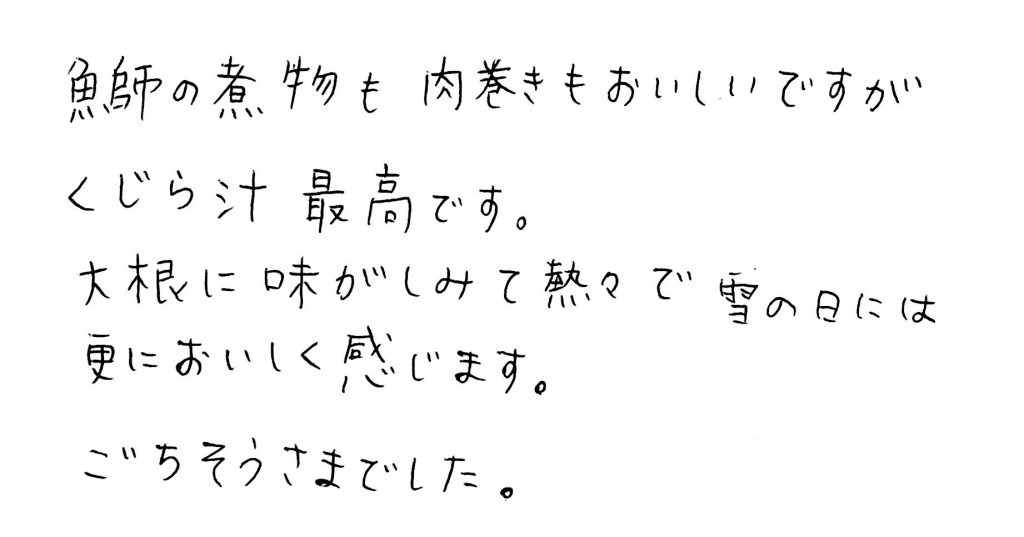 魚師の煮物も肉巻きもおいしいですが
くじら汁 最高です。
大根に味がしみて熱々で雪の日には
更においしく感じます。
ごちそうさまでした。